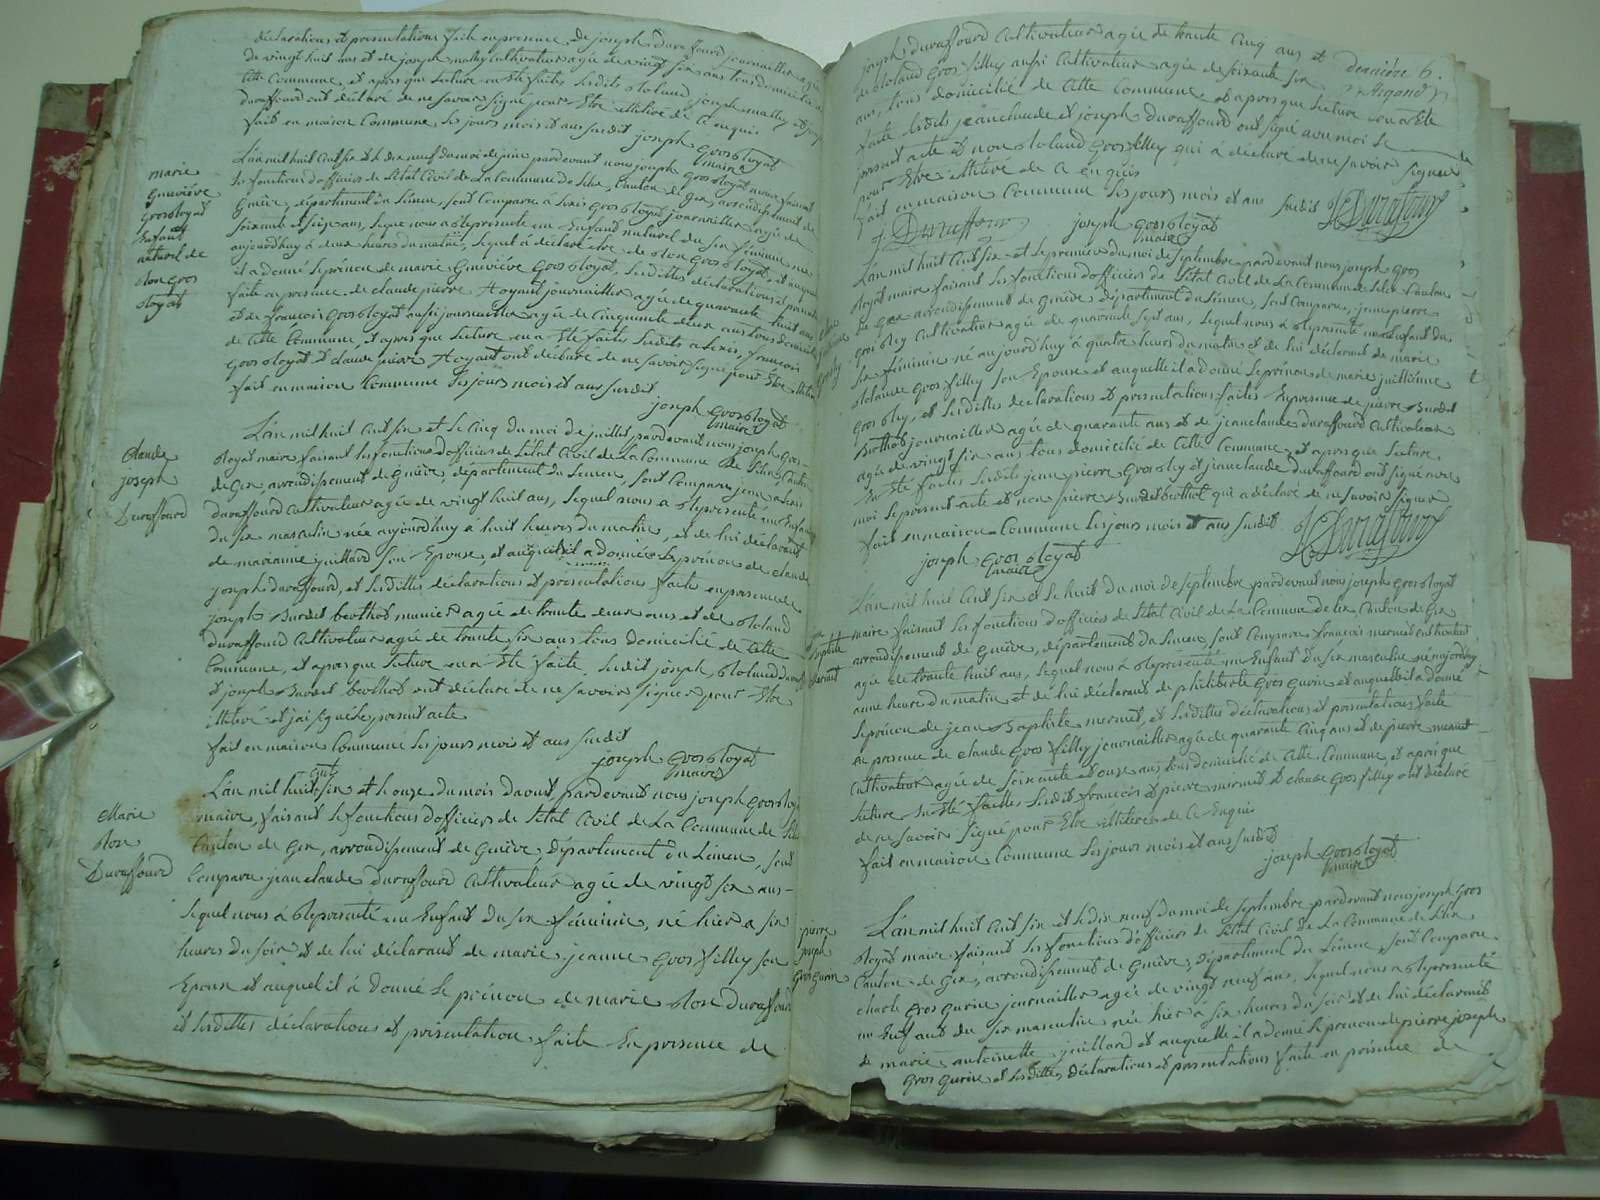 déclarations et présentations faite en présence de joseph duraffourd journaillier agée
de vingt huit ans et de joseph malley cultivateur agée de vingt six ans tous domicilié de
cette Commune, et apres que lecture en été faites lesdits roland joseph malley et joseph
duraffourd ont déclaré de ne savoir signé pour Etre illitéré de ce enquis
fait en maison Commune les jours mois et ans susdit
joseph grosroyat
maire
marie
Geneviéve
grosroyat
Enfant
naturel de
rose gros
royat
L'an mil huit cent six et le dix neuf du moi de juin pardevant nous joseph grosroyat maire faisant
les fonctions d'officiers de l'état Civil de la Commune de Lelex, Canton de gex, arrondisement de
Genève, département du Léman, sont Comparu alexis grosroyat journaillier agée de
soixante et six ans, lequel nous a représenté un Enfant naturel du sex féminin né
aujourd'huy à deux heures du matin, lequel à déclaré être de rose grosroyat, et auquel
il a donné le prénon de marie Geneviéve grosroyat, lesdittes déclarations et présentations
faite en présence de claude pierre journaillier agée de quarante huit ans
et de françois grosroyat aussi journaillier agée de Cinquante deux ans tous domicilié
de cette Commune, et apres que lecture en a été faites lesdits alexis, françois
grosroyat et claude pierre ont déclaré de ne savoir signé pour Etre illitéré
fait en maison Commune les jours mois et ans susdit
joseph grosroyat
maire
Claude
joseph
Duraffourd
L'an mil huit cent six et le cinq du moi de juillet, pardevant nous joseph gros-
royat maire faisant les fonctions d'officiers de l'état Civil de la Commune de Lelex, Canton
de Gex, arrondisement de Genève, département du Léman, sont Comparu jean alexis
duraffourd Cultivateur agée de vingt huit ans, lequel nous a représenté un Enfant
du sex masculin née aujourd'huy à huit heures du matin, et de lui déclarant
de marianne juillard son Epouse, et auquel il a donnée le prénon de claude
joseph duraffourd, et lesdittes déclarations et présentations faite en présence de
joseph burdet berthod agée de trante deux ans et de roland
duraffourd Cultivateur agée de trante six ans tous domicilié de cette
Commune, et apres que lecture en a Eté faite, ledit joseph, roland duraff.
et joseph burdet berthod ont déclaré de ne savoir signer pour Etre
illitéré et jai signé le présent acte
fait en maison Commune les jours mois et ans susdit
joseph grosroyat
maire
Marie
rose
Duraffourd
L'an mil huit cent six et le onze du mois daout pardevant nous joseph grosroyat
maire, faisant les fonctions d'officiers de l'état Civil de la Commune de Lelex
Canton de Gex, arrondisement de Genève, département du Léman, sont
Comparu jean claude duraffourd Cultivateur agée de vingt six ans-
lequel nous à représenté un Enfant du sex féminin, né hier a six
heures du soir et de lui déclarant de marie jeanne gros filley son
Epouse et auquel il à donné le prénon de marie rose duraffourd
et lesdittes déclarations et présentation faite En présence de
joseph duraffourd Cultivateur agée de trante cinq ans et
de roland gros filley aussi Cultivateur agée de soixante six
ans, tous domicilié de cette Commune, et apres que lecture en a Eté
faite lesdits jean claude et joseph duraffourd ont signé avec moi le
présent acte et non roland gros filley qui à déclaré de ne savoir signer
pour Etre illitéré de ce enquis
fait en maison Commune les jours mois et ans susdit
dernière 6.
J Duraffour
joseph grosroyat
maire
JC Durafour
L'an mil huit cent six et le premier du moi de septembre pardevant nous joseph gros
royat maire faisant les fonctions d'officiers de l'état Civil de la Commune de Lelex Canton
de Gex arrondisement de Genève département du Léman, sont Comparu, jean pierre
grosley Cultivateur agée de quarante sept ans, lequel nous à représenté un Enfant du
sex féminin né aujourd'huy à quatre heures du matin et de lui déclarant de marie
rolande gros filley son Epouse et auquelle il a donné le prénon de marie juillienne
grosley, et lesdittes déclarations et présentations faites En présence de pierre burdet
berthod journaillier agée de quarante ans et de jean claude duraffourd Cultivateur
agée de vingt six ans tous domicilié de cette Commune et apres que lecture
en Eté faites lesdits jean pierre grosley et jean claude duraffourd ont signé avec
moi le présent acte et non pierre burdet berthod qui a déclaré de ne savoir signer
fait en maison Commune les jours mois et ans susdit
JC Durafour
joseph grosroyat
maire
L'an mil huit cent six et le huit du moi de septembre pardevant nous joseph grosroyat
maire faisant les fonctions d'officiers de l'état Civil de la Commune de Lelex, Canton de Gex
arrondisement de Genève, département du Léman, sont Comparu françois mermet cultivateur
agée de trante huit ans, lequel nous à représenté un Enfant du sex masculin né aujourd'huy
a une heure du matin et de lui déclarant de philiberte grosgurin et auquelle il a donné
le prénon de jean baptiste mermet, et lesdittes déclarations et présentations faite
en présence de claude gros filley journaillier agée de quarante cinq ans et de pierre mermet
Cultivateur agée de soixante et onze ans tous domicilié de cette Commune, et apres que
lecture en Eté faittes lesdit françois et pierre mermet et claude gros filley ont déclaré
de ne savoir signé pour Etre illitéré de ce Enquis
fait en maison Commune les jours mois et ans susdit
joseph grosroyat
maire
pierre
joseph
grosgurin
L'an mil huit cent six et le dix neuf du moi de septembre pardevant nous joseph gros
royat maire faisant les fonctions d'officiers de l'état Civil de la Commune de Lelex
Canton de Gex, arrondisement de Genève, département du Léman, sont Comparu
charle grosgurin journaillier agée de vingt neuf ans, lequel nous a représenté
un Enfant du sex masculin née hier à six heures du soir et de lui déclarant
de marie antoinette juillard et auquelle il a donné le prénon de pierre joseph
gros gurin et lesdittes déclarations et présentations faite en présence de